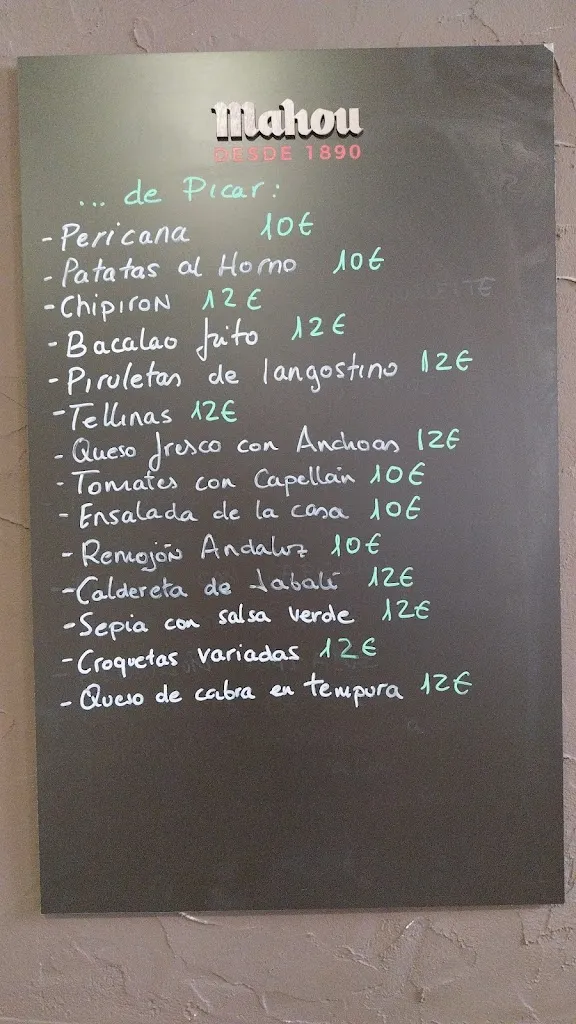 Mahou
DESDE 1890
... de Picar:
- Pericana 10€
- Patatas al Horno 10€
- Chipiron 12€
- Bacalao frito 12€
- Piruletas de langostino 12€
- Tellinas 12€
- Queso fresco con Anchoas 12€
- Tomates con Capellán 10€
- Ensalada de la casa 10€
- Remojón Andaluz 10€
- Caldereta de Jabalí 12€
- Sepia con salsa verde 12€
- Croquetas variadas 12€
- Queso de cabra en tempura 12€